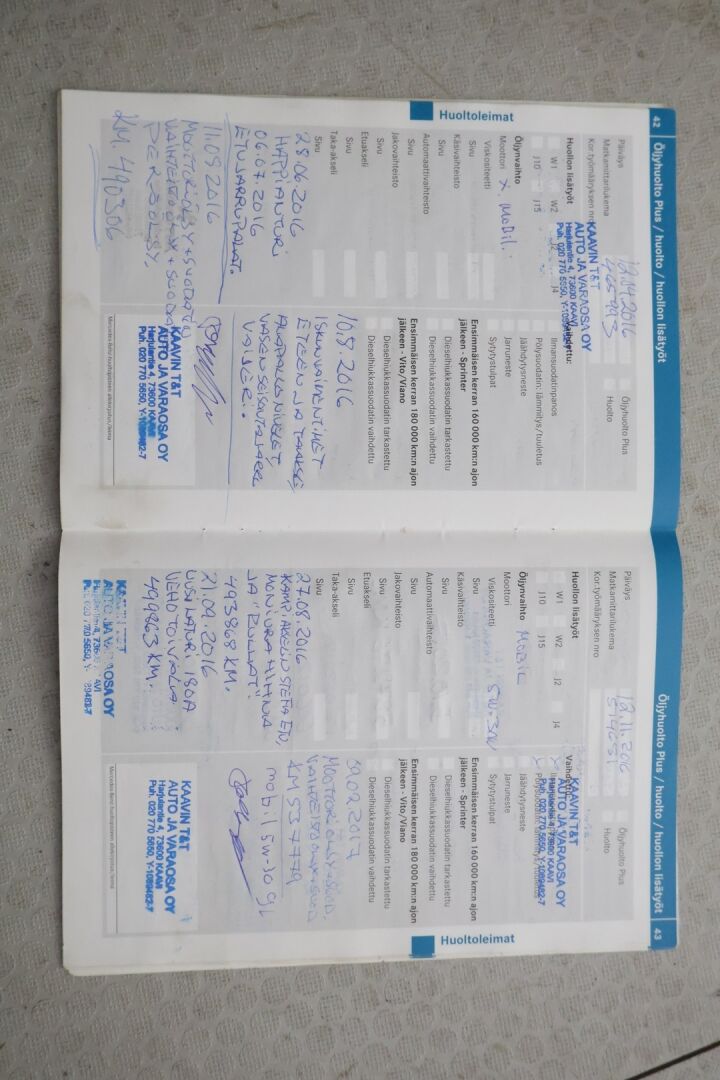 42 Öljyhuolto Plus / huolto / huollon lisätyöt
Päiväys 12.04.2016
Matkamittarilukema
Kor.työmääräyksen nro
Öljyhuolto Plus
Huolto
Huollon lisätyöt
W1 W2 J2 J4
J10 J15
KAAVIN T&T
AUTO JA VARAOSA OY
Harjulantie 4, 73600 KAAVI
Puh. 020 770 5650, Y-1089482-7
Vaihdettu:
Ilmansuodatinpanos
Pölysuodatin: lämmitys/tuuletus
Jäähdytysneste
Jarruneste
Sytytystulpat
Öljynvaihto
Moottori X MOBIL
Viskositeetti
Sivu
Käsivaihteisto
Sivu
Automaattivaihteisto
Sivu
Jakovaihteisto
Sivu
Etuakseli
Sivu
Taka-akseli
Sivu
Ensimmäisen kerran 160 000 km:n ajon
jälkeen - Sprinter
Dieselhiukkassuodatin tarkastettu
Dieselhiukkassuodatin vaihdettu
Ensimmäisen kerran 180 000 km:n ajon
jälkeen - Vito/Viano
Dieselhiukkassuodatin tarkastettu
Dieselhiukkassuodatin vaihdettu
28.06.2016
HAPPIANTURI
06.07.2016
ETUJARRUPALAT.
11.09.2016
MOOTTORIÖLJY + SUODATIN
VAIHTEISTOÖLJY + SUODATIN
PERÄÖLJY,
KM. 490306
10.8.2016
ISKUNVAIMENTIMET
ETEEN JA TAAKSE,
ALAPALLONIVELET,
VASEN SEISONTAJARRU
VAIJERI.
KAAVIN T&T
AUTO JA VARAOSA OY
Harjulantie 4, 73600 KAAVI
Puh. 020 770 5650, Y-1089482-7
Huoltoleimat
43 Öljyhuolto Plus / huolto / huollon lisätyöt
Päiväys 12.11.2016
Matkamittarilukema
Kor.työmääräyksen nro
Öljyhuolto Plus
Huolto
Huollon lisätyöt
W1 W2 J2 J4
J10 J15
KAAVIN T&T
AUTO JA VARAOSA OY
Harjulantie 4, 73600 KAAVI
Puh. 020 770 5650, Y-1089482-7
Jäähdytysneste
Jarruneste
Sytytystulpat
Öljynvaihto MOBIL
Moottori
Viskositeetti 5W-30
Sivu
Käsivaihteisto
Sivu
Automaattivaihteisto
Sivu
Jakovaihteisto
Sivu
Etuakseli
Sivu
Taka-akseli
Sivu
Ensimmäisen kerran 160 000 km:n ajon
jälkeen - Sprinter
Dieselhiukkassuodatin tarkastettu
Dieselhiukkassuodatin vaihdettu
Ensimmäisen kerran 180 000 km:n ajon
jälkeen - Vito/Viano
Dieselhiukkassuodatin tarkastettu
Dieselhiukkassuodatin vaihdettu
27.08.2016
KAMPIAKSELIN STEFA ETU,
MONIURAHIHNA
JA "RULLAT".
493868 KM.
21.09.2016
UUSI LATURI 180A
VEHOTOIVALA
499863 KM.
KAAVIN T&T
AUTO JA VARAOSA OY
Harjulantie 4, 73600 KAAVI
Puh. 020 770 5650, Y-1089482-7
09.02.2017
KM 537779
mobil 5W-30 9L
KAAVIN T&T
AUTO JA VARAOSA OY
Harjulantie 4, 73600 KAAVI
Puh. 020 770 5650, Y-1089482-7
Huoltoleimat